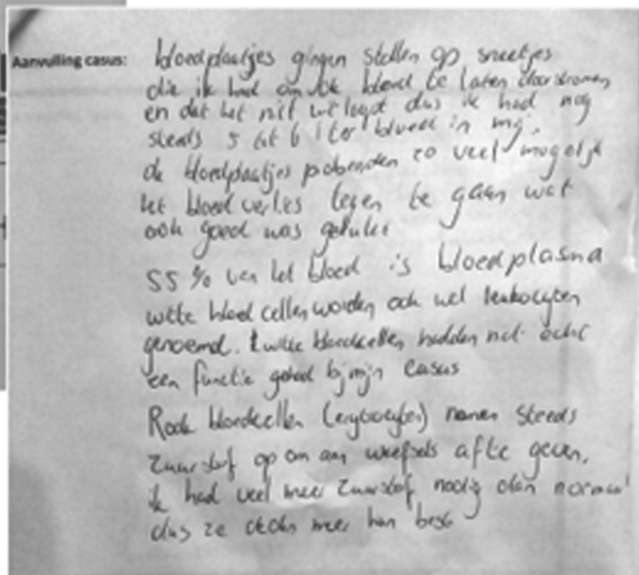 Aanvulling casus: bloedplaatjes gingen stollen op sneetjes
die ik had om het bloed te laten doorstromen
en dat het niet weg dus ik had nog
steeds 5 tot 6 liter bloed in mij.
de bloedplaatjes probeerden zo veel mogelijk
het bloedverlies tegen te gaan wat
ook goed was gelukt
55 % van het bloed is bloedplasma
witte bloedcellen worden ook wel leukocyten
genoemd. witte bloedcellen hadden niet echt
een functie gehad bij mijn casus
Rode bloedcellen (erytrocyten) namen steeds
zuurstof op om aan weefsels af te geven,
ik had veel meer zuurstof nodig dan normaal
dus ze deden meer hun best